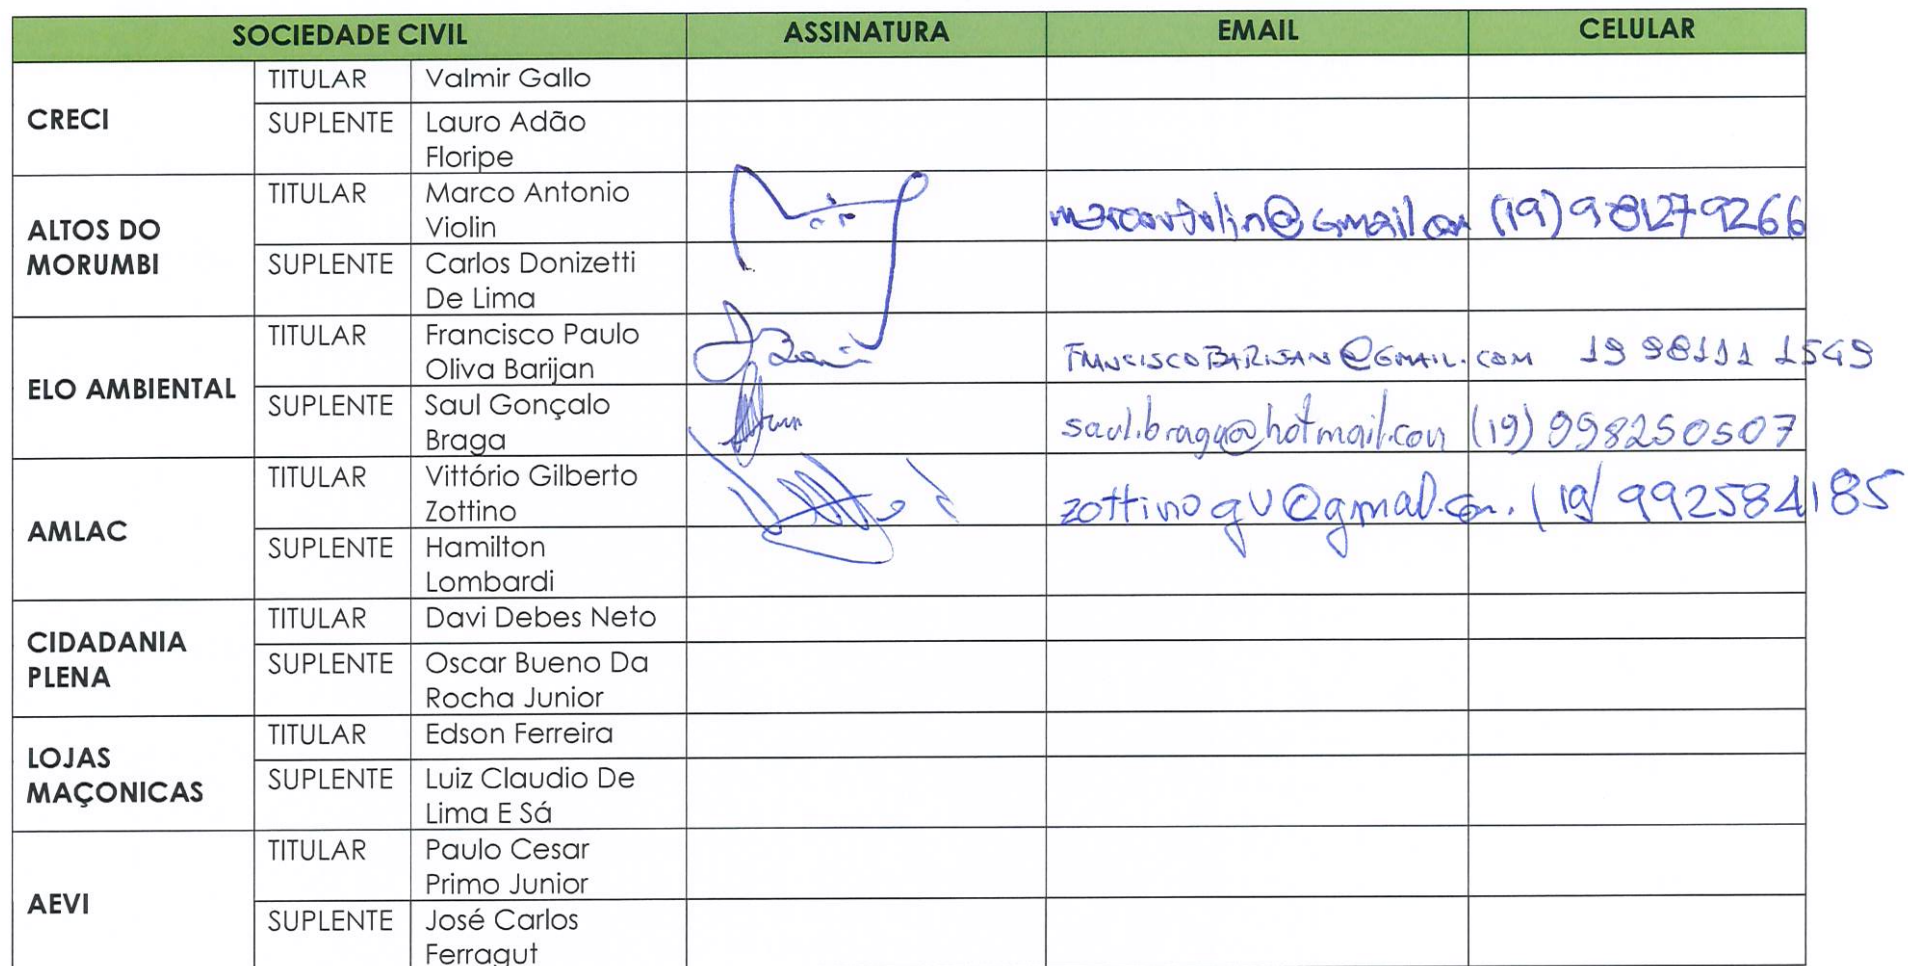 SOCIEDADE CIVIL ASSINATURA EMAIL CELULAR
CRECI
TITULAR Valmir Gallo
SUPLENTE Lauro Adão
Floripe
ALTOS DO
MORUMBI
TITULAR Marco Antonio
Violin
(19) 981279266
SUPLENTE Carlos Donizetti
De Lima
ELO AMBIENTAL
TITULAR Francisco Paulo
Oliva Barijan
FRANCISCOBARIJAN@GMAIL.COM 19 98111 1549
SUPLENTE Saul Gonçalo
Braga
saul.braga@hotmail.com (19) 998250507
AMLAC
TITULAR Vittório Gilberto
Zottino
zottinogv@gmail.com. (19) 992584185
SUPLENTE Hamilton
Lombardi
CIDADANIA
PLENA
TITULAR Davi Debes Neto
SUPLENTE Oscar Bueno Da
Rocha Junior
LOJAS
MAÇONICAS
TITULAR Edson Ferreira
SUPLENTE Luiz Claudio De
Lima E Sá
AEVI
TITULAR Paulo Cesar
Primo Junior
SUPLENTE José Carlos
Ferragut